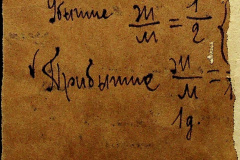 Убытие т/м = 1/2
✓ Прибытие т/м =
1д.